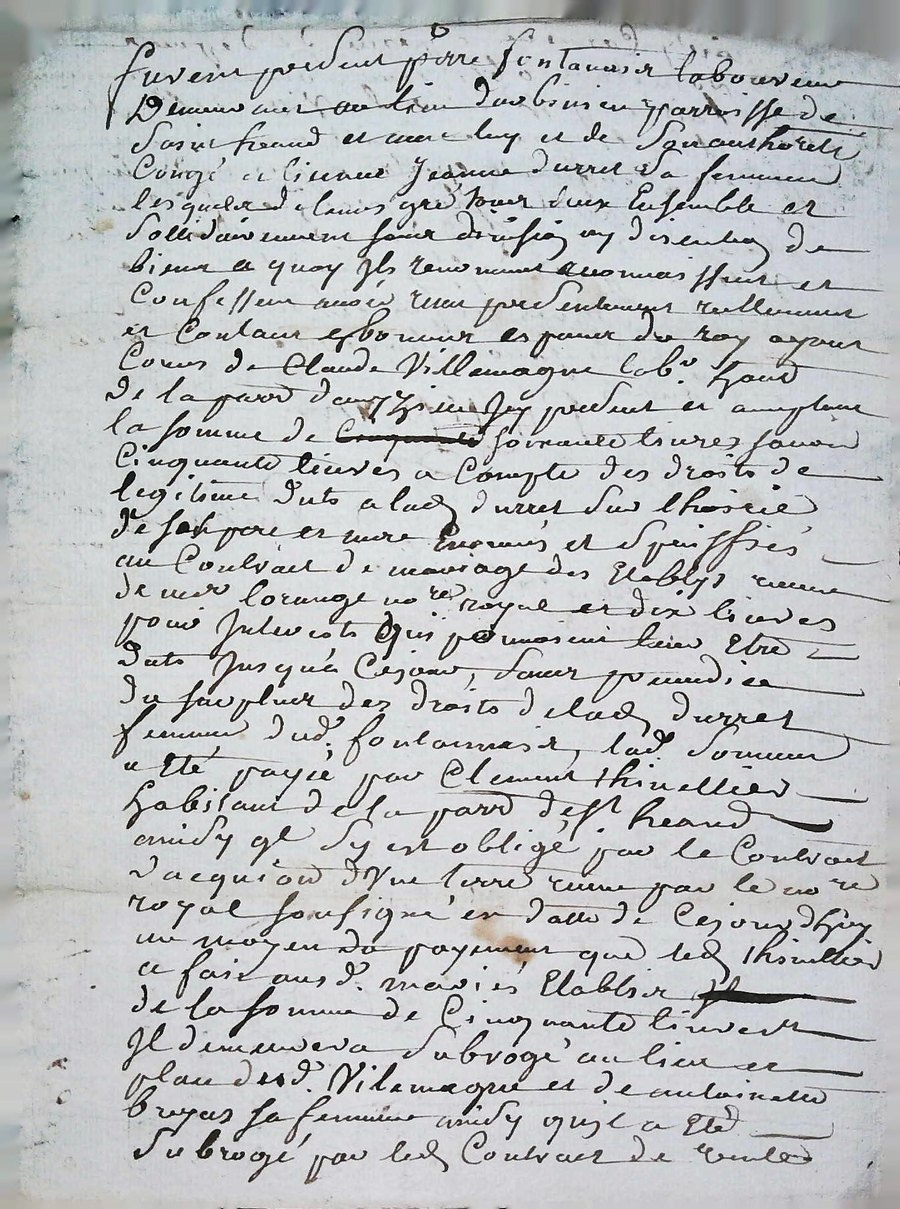 furent presents pierre fontanaisir laboureur
Demeurant au lieu parroisse de
Saint heand et avec luy et de Son authorité
Congé et licence Jeanne durret Sa femme
lesquels de leurs gré tous deux Ensemble et
Sollidairement sans division ny discution de
biens a quoy Ils renoncent reconnaissent et
Confessent avoir reçu presentement reellement
et Contant en bonnes especes du roy ayant
Cours de Claude Villemagne lab.r
de la parr. Icy present et acceptant
la somme de soixante livres savoir
Cinquante livres a Compte des droits de
legitime duts a lad durret Sur lhoirie
de ses pere et mere Enoncés et Speciffiés
au Contrait de mariage des Etablys reçu
de me lorange no.re royal et dix livres
pour Interests qui peuvent leur Etre
duts Jusqu'a Cejour, Sans prejudice
du surplus des droits de lad durret
femme dud. fontannaisir, lad. Somme
a Eté payée par Clement thinellier
habitant de la parr de St heand
ainsy q.l Sy est obligé par le Contrait
Dacquion d'Une terre reçu par le no.re
royal sousigné en datte de Cejourdhuy
au moyen du payement que led thinellier
a fait aus d. mariés Etablis
de la somme de Cinquante livres
Il demeurera Subrogé au lieu et
place dud. Villemagne et de antoinette
sa femme ainsy quil a Eté
Subrogé par led Contrait de vente